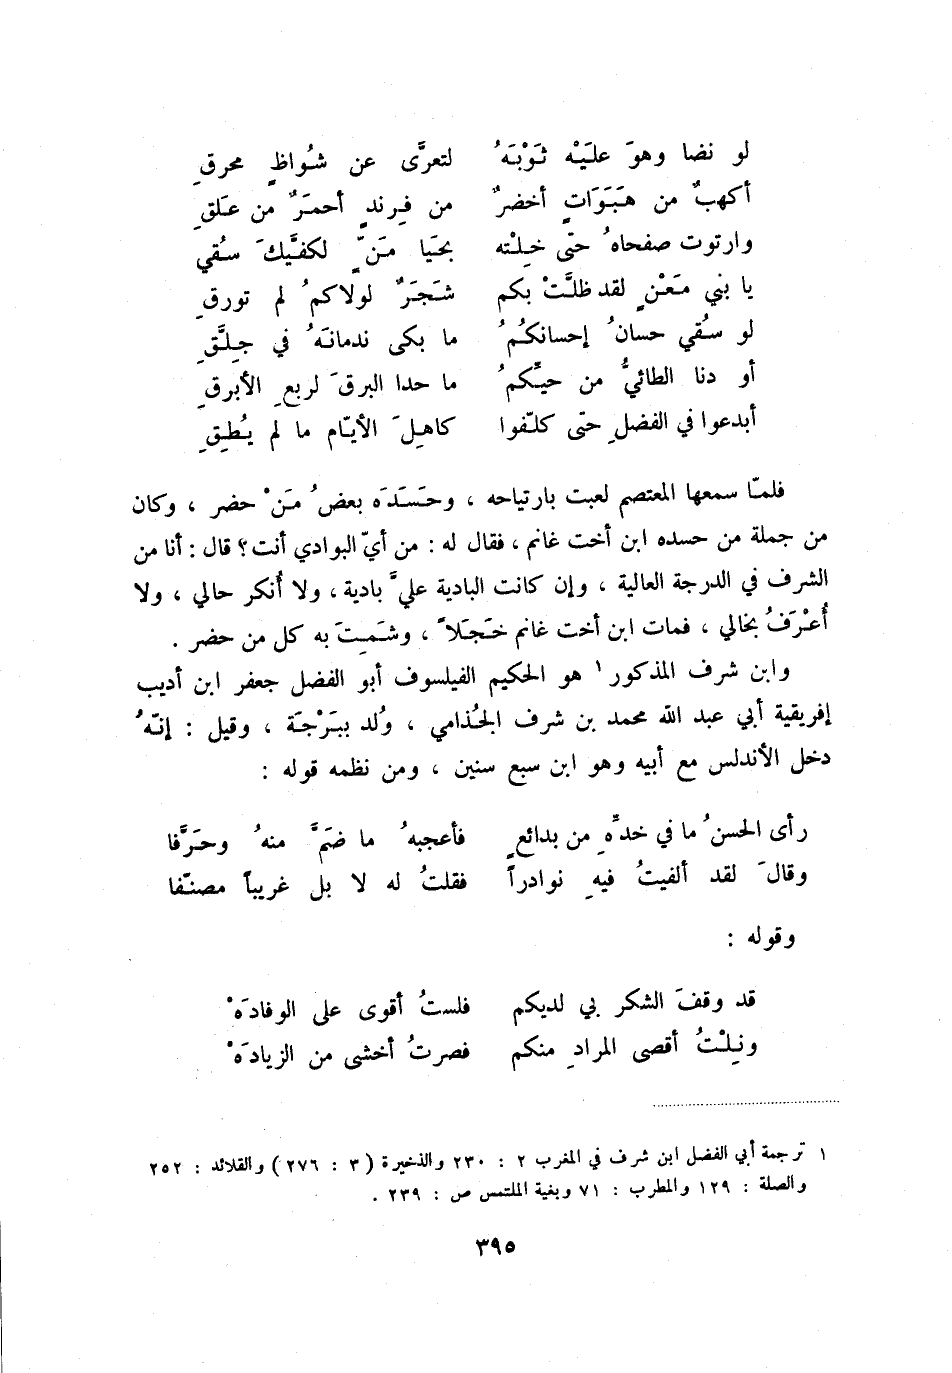 لو نضا وهوَ علَيْه ثَوْبَهُ لتعرَّى عن شُواظٍ محرقِ
أكهبٌ من هَبَوَاتٍ أخضرٌ من فِرندٍ أحمَرٌ من عَلَقِ
وارتوت صفحاهُ حتّى خِلْته بحَيا مَنٍّ لكفَّيكَ سُقي
يا بني مَعْنٍ لقد ظلَّتْ بكم شَجَرٌ لولاكمُ لم تورقِ
لو سُقي حسانُ إحسانكُمُ ما بكى ندمانَهُ في جِلَّقِ
أو دنا الطائيُّ من حيّكمُ ما حدا البرقَ لربعِ الأبرقِ
أبدعوا في الفضلِ حتّى كلّفوا كاهِلَ الأيّام ما لم يُطِقِ
فلمّا سمعها المعتصم لعبت بارتياحه ، وحَسَدَه بعضُ مَنْ حضر ، وكان
من جملة من حسده ابن أخت غانم ، فقال له : من أيّ البوادي أنت؟ قال : أنا من
الشرف في الدرجة العالية ، وإن كانت البادية عليَّ بادية ، ولا أُنكر حالي ، ولا
أُعْرَفُ بخالي ، فمات ابن أخت غانم خَجَلاً ، وشَمِتَ به كل من حضر .
وابن شرف المذكور ١ هو الحكيم الفيلسوف أبو الفضل جعفر ابن أديب
إفريقية أبي عبد الله محمد بن شرف الجُذامي ، وُلد ببَرْجَة ، وقيل : إنّهُ
دخل الأندلس مع أبيه وهو ابن سبع سنين ، ومن نظمه قوله :
رأى الحسنُ ما في خدّهِ من بدائعٍ فأعجبهُ ما ضَمَّ منهُ وحَرَّفا
وقالَ لقد ألفيتُ فيهِ نوادراً فقلتُ له لا بل غريباً مصنّفا
وقوله :
قد وقفَ الشكر بي لديكم فلستُ أقوى على الوفادَهْ
ونِلْتُ أقصى المرادِ منكم فصرتُ أخشى من الزيادَهْ
١ ترجمة أبي الفضل ابن شرف في المغرب ٢ : ٢٣٠ والذخيرة ( ٣ : ٢٧٦ ) والقلائد : ٢٥٢
والصلة : ١٢٩ والمطرب : ٧١ وبغية الملتمس ص : ٢٣٩ .
٣٩٥